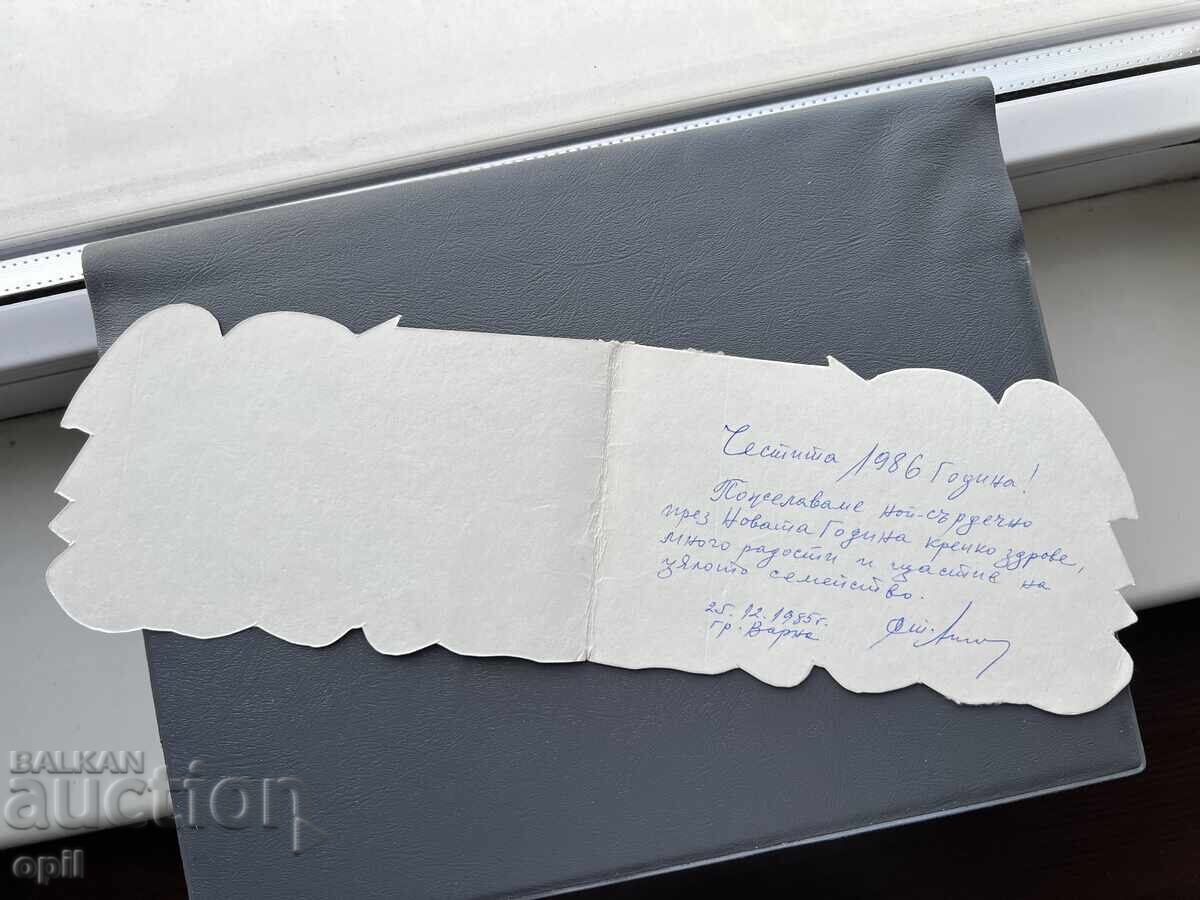 Честита 1986 Година!
Пожелаваме най-сърдечно
през Новата Година крепко здраве,
много радости и щастие на
цялото семейство.
25.12.1985г.
гр. Варна
BALKAN
auction
opil